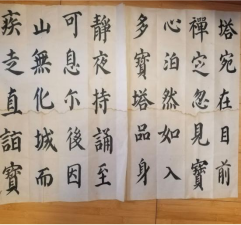 疾走直詣寶
山無化城而
可息尒後因
靜夜持誦至
多寶塔品身
心泊然如入
禪定忽見寶
塔宛在目前